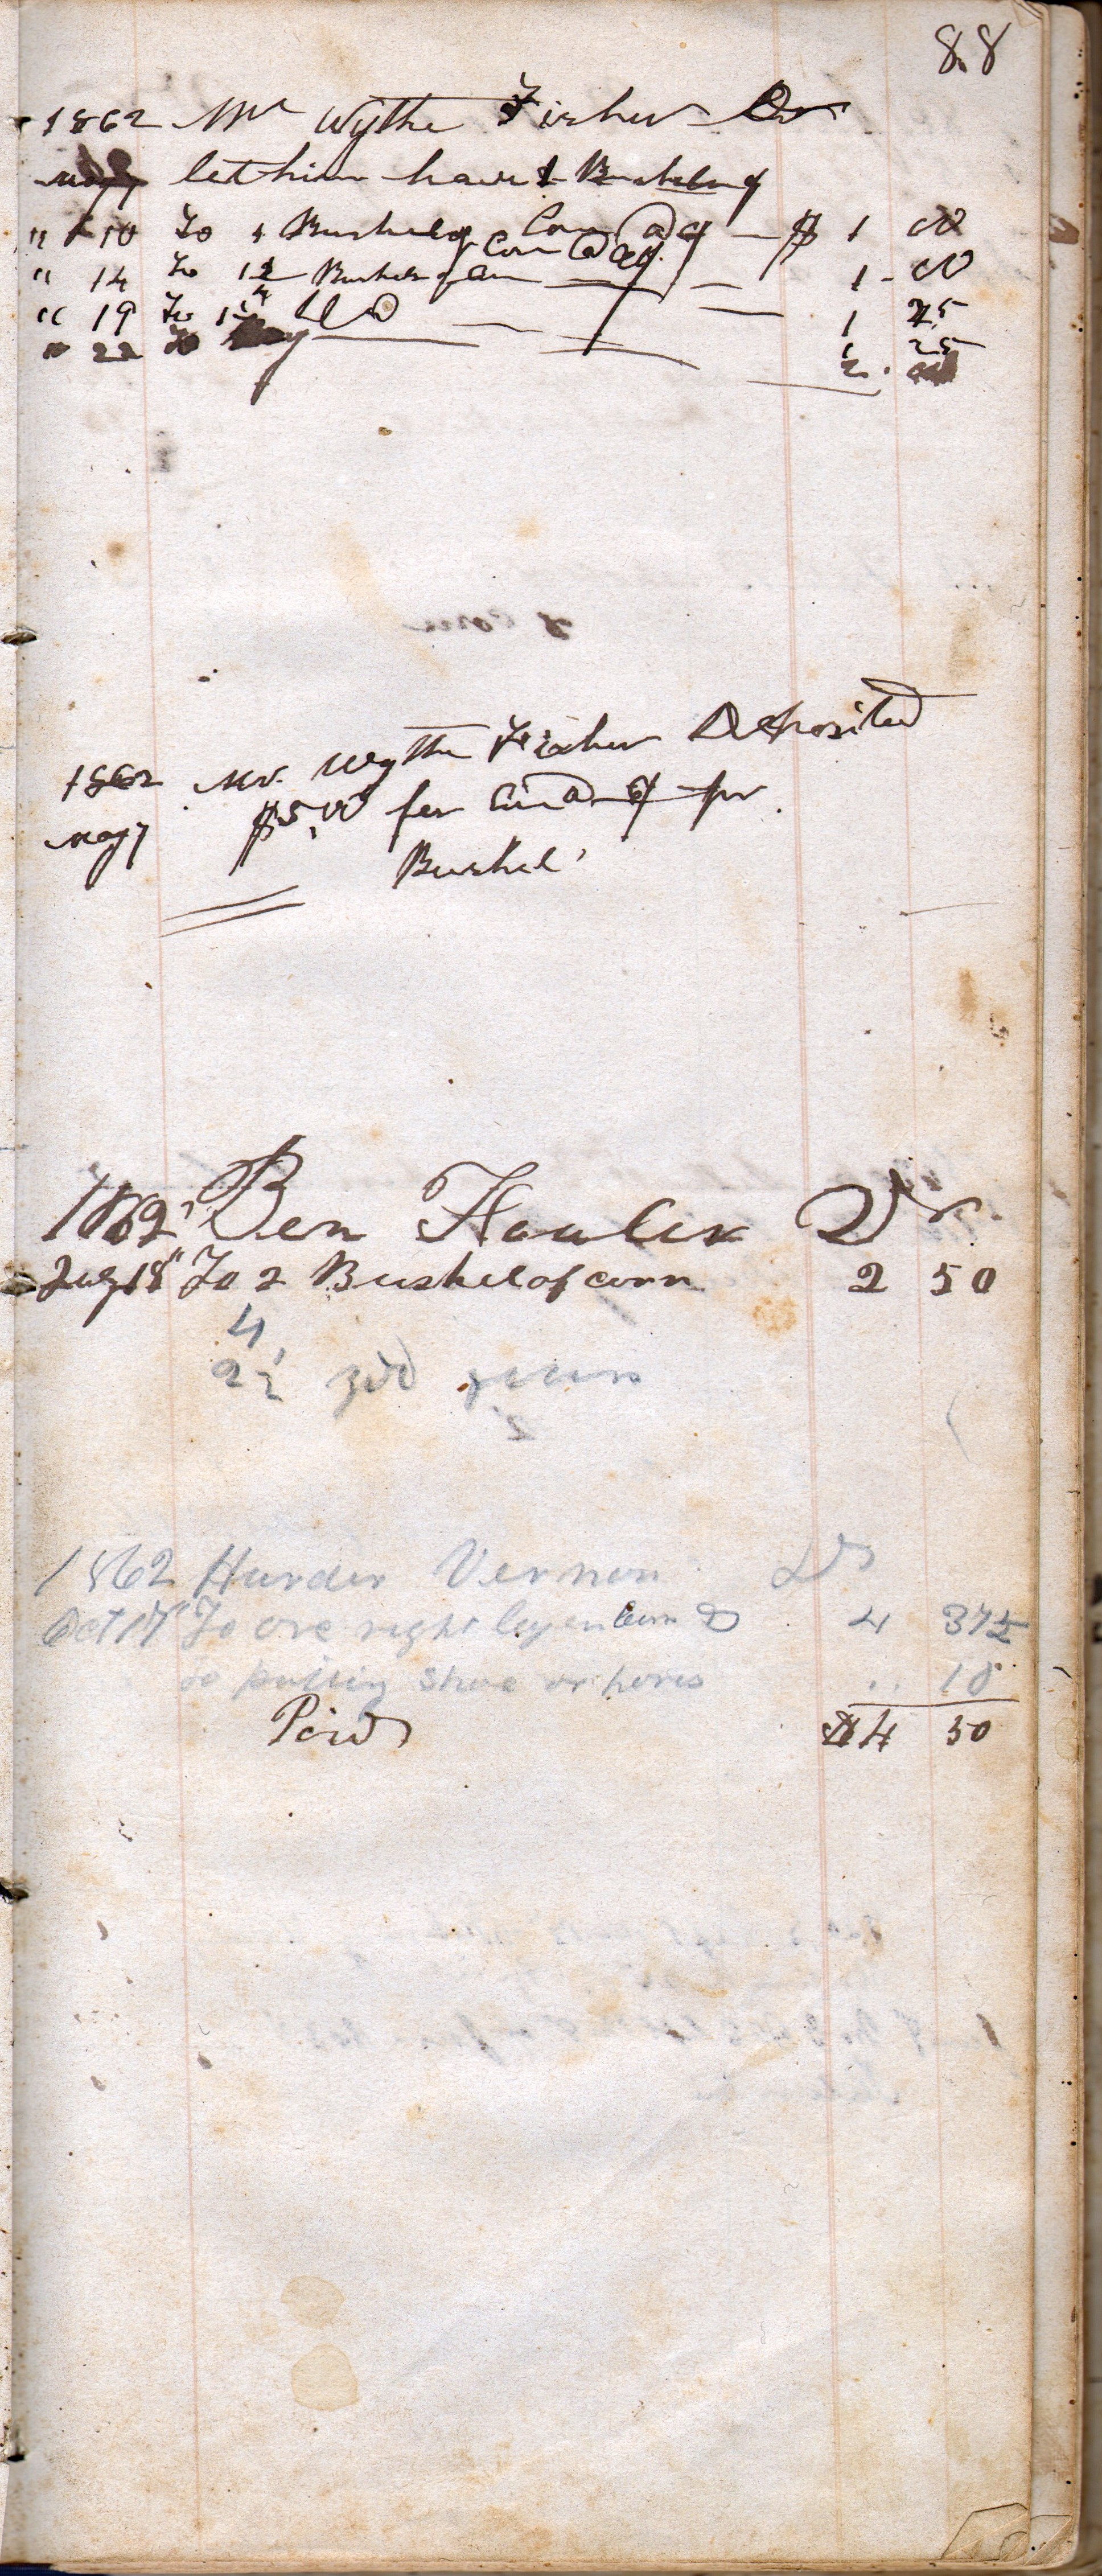 88
1862 Mr Wythe Fisher Dr
May 7 let him have 1 Bushel of
" 10 To 1 Bushel of Corn @ $ 1 00
Corn @
" 14 To 1 Bushel of Corn 1 - 00
" 19 To 1 Do 1 25
" 22 To 1 25
2.
1862 Mr. Wythe Fisher Deposited
May 7 $5,00 for Corn @ pr
Bushel
1862 Ben Hawler Dr.
July 18" To 2 Bushel of corn 2 50
4
2 1/2
1862 Hurder Vernon Dr
Oct 17 To one right Corn 4 37 1/2
To putting Shoe or hores .. 18
Paid $4 50